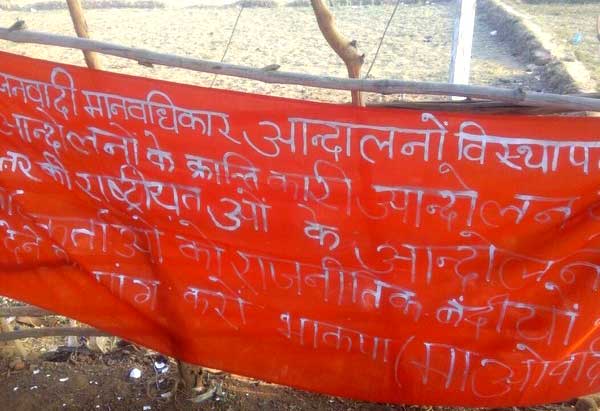 जनवादी मानवधिकार आन्दालनों विस्थाप
आन्दोलनों के क्रान्तिकारी आन्दोलन
की राष्ट्रीयताओं के आन्दोलन
कर्ताओं को राजनीतिक कैदीयों
मांग करो भाकपा (माओवादी